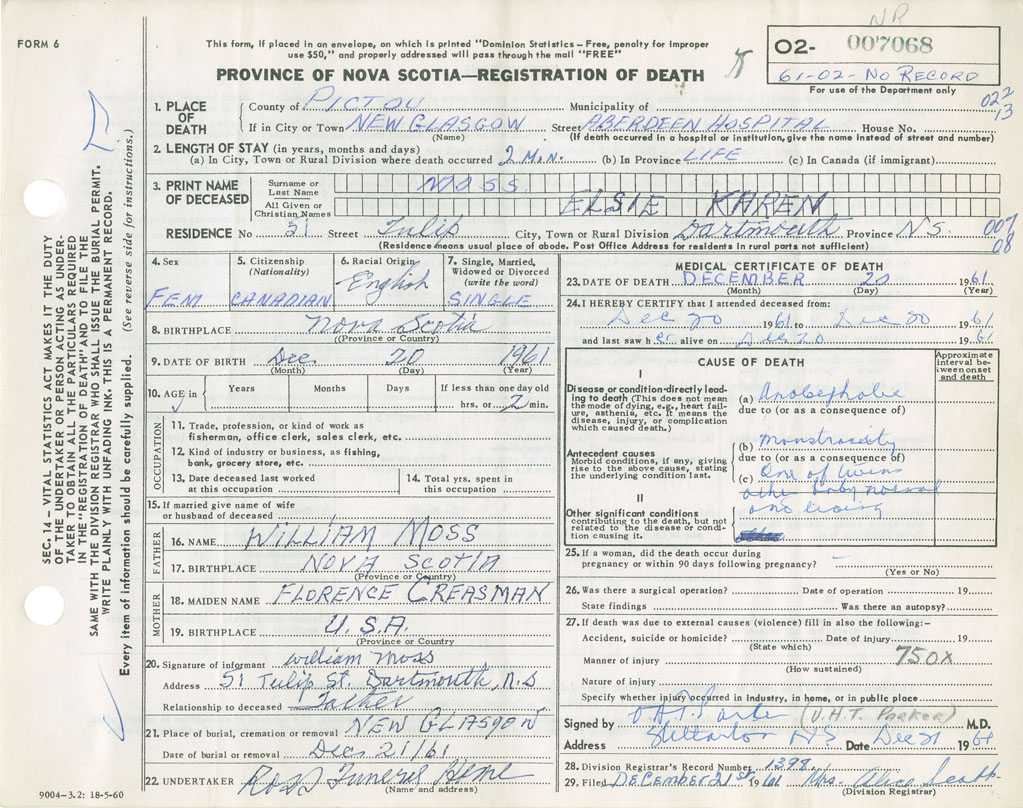 NR
FORM 6
This form, if placed in an envelope, on which is printed "Dominion Statistics – Free, penalty for improper
use $50," and properly addressed will pass through the mail "FREE"
02- 007068
61-02-NO RECORD
For use of the Department only
PROVINCE OF NOVA SCOTIA—REGISTRATION OF DEATH
022
13
1. PLACE OF DEATH
County of PICTOU Municipality of
If in City or Town NEW GLASGOW Street ABERDEEN HOSPITAL House No.
(Name) (If death occurred in a hospital or institution, give the name instead of street and number)
2. LENGTH OF STAY (in years, months and days)
(a) In City, Town or Rural Division where death occurred 2 MIN. (b) In Province LIFE (c) In Canada (if immigrant)
3. PRINT NAME OF DECEASED
Surname or Last Name MOSS
All Given or Christian Names ELSIE KAREN
RESIDENCE No 51 Street Tulip City, Town or Rural Division Dartmouth Province N.S. 007
08
(Residence means usual place of abode. Post Office Address for residents in rural parts not sufficient)
4. Sex FEM
5. Citizenship (Nationality) CANADIAN
6. Racial Origin English
7. Single, Married, Widowed or Divorced (write the word) SINGLE
8. BIRTHPLACE Nova Scotia
(Province or Country)
9. DATE OF BIRTH Dec 20 1961
(Month) (Day) (Year)
10. AGE in Years Months Days If less than one day old
hrs. or 2 min.
OCCUPATION
11. Trade, profession, or kind of work as
fisherman, office clerk, sales clerk, etc.
12. Kind of industry or business, as fishing,
bank, grocery store, etc.
13. Date deceased last worked
at this occupation
14. Total yrs. spent in
this occupation
15. If married give name of wife
or husband of deceased
FATHER
16. NAME WILLIAM MOSS
17. BIRTHPLACE NOVA SCOTIA
(Province or Country)
MOTHER
18. MAIDEN NAME FLORENCE CREASMAN
19. BIRTHPLACE U.S.A.
(Province or Country
20. Signature of informant William Moss
Address 51 Tulip St. Dartmouth, N.S
Relationship to deceased Father
21. Place of burial, cremation or removal NEW GLASGOW
Date of burial or removal Dec 21/61
22. UNDERTAKER Ross Funeral Home
(Name and address)
9004-3.2: 18-5-60
MEDICAL CERTIFICATE OF DEATH
23. DATE OF DEATH DECEMBER 20 1961
(Month) (Day) (Year)
24. I HEREBY CERTIFY that I attended deceased from:
Dec 20 1961 to Dec 20 1961
and last saw her alive on Dec 20 1961
CAUSE OF DEATH
Approximate interval between onset and death
I
Disease or condition directly leading to death (This does not mean the mode of dying, e.g., heart failure, asthenia, etc. It means the disease, injury, or complication which caused death.)
(a)
due to (or as a consequence of)
Antecedent causes
Morbid conditions, if any, giving rise to the above cause, stating the underlying condition last.
(b) monstrosity
due to (or as a consequence of)
(c) One of twins
other baby normal
and living
II
Other significant conditions
contributing to the death, but not related to the disease or condition causing it.
25. If a woman, did the death occur during
pregnancy or within 90 days following pregnancy?
(Yes or No)
26. Was there a surgical operation? Date of operation 19
State findings Was there an autopsy?
27. If death was due to external causes (violence) fill in also the following:-
Accident, suicide or homicide? Date of injury 19
(State which)
Manner of injury 750X
(How sustained)
Nature of injury
Specify whether injury occurred in industry, in home, or in public place
Signed by (V.H.T. Parker) M.D.
Address Stellarton N.S. Date Dec 21 1961
28. Division Registrar's Record Number 1398
29. Filed DECEMBER 21st 1961 Mrs. Alice Scott
(Division Registrar)
SEC. 14 – VITAL STATISTICS ACT MAKES IT THE DUTY
OF THE UNDERTAKER OR PERSON ACTING AS UNDER-
TAKER TO OBTAIN ALL THE PARTICULARS REQUIRED
IN THE "REGISTRATION OF DEATH" AND TO FILE THE
SAME WITH THE DIVISION REGISTRAR WHO SHALL ISSUE THE BURIAL PERMIT.
WRITE PLAINLY WITH UNFADING INK. THIS IS A PERMANENT RECORD.
Every item of information should be carefully supplied. (See reverse side for instructions.)